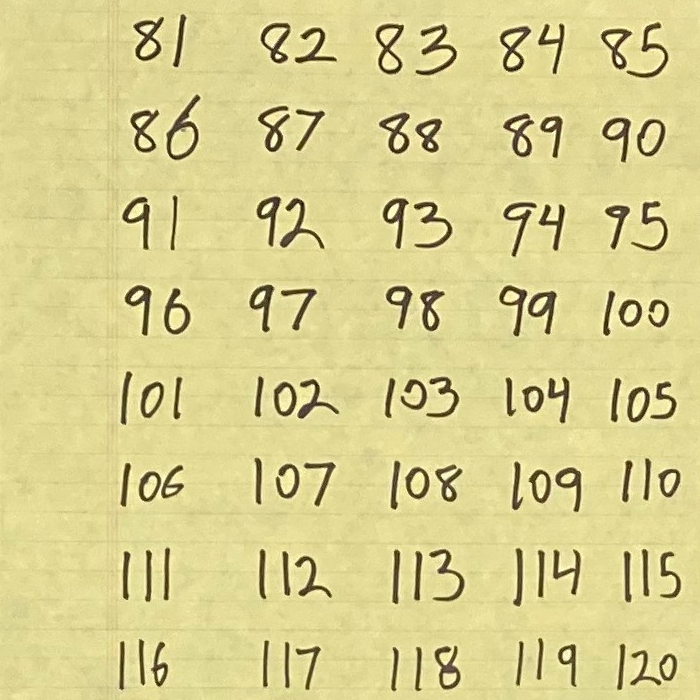 81 82 83 84 85
86 87 88 89 90
91 92 93 94 95
96 97 98 99 100
101 102 103 104 105
106 107 108 109 110
111 112 113 114 115
116 117 118 119 120